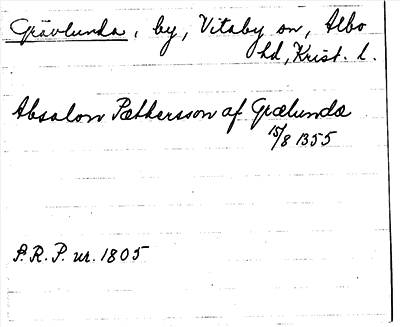 Grävlunda, by, Vitaby sn, Albo
hd, Krist. l.
Absalon Pæthersson af Grælundæ
15/8 1355
S.R.P. nr. 1805